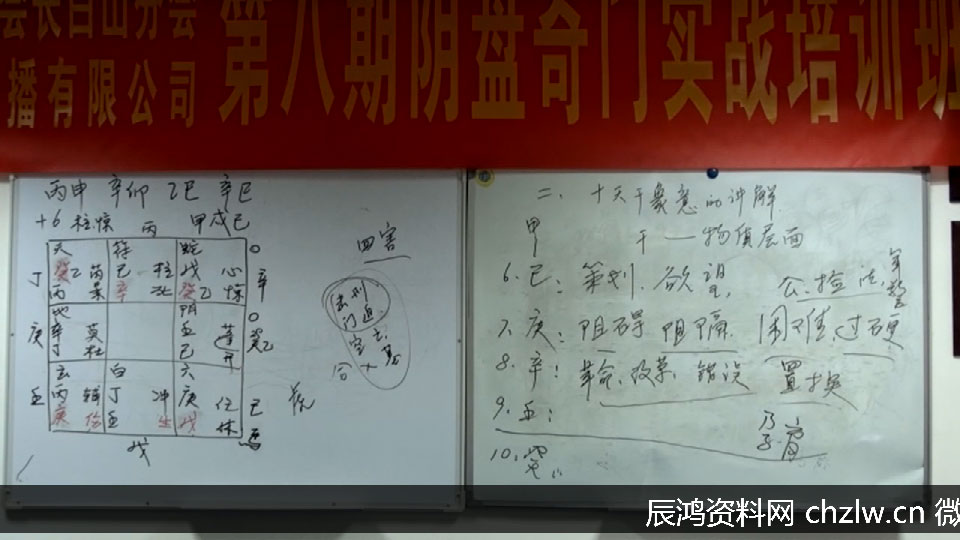 会长白山分会
播有限公司
第八期阴盘奇门实战培训班
丙申 辛卯 乙巳 辛巳
+6 柱惊 丙 甲戌己
天 符 蛇
癸乙 芮 己 柱 戊 心
丙 景 辛 死 癸乙 惊
丁 辛
地 阴
辛 英 壬 蓬
丁 杜 己 开
庚 癸乙
玄 白 六
丙 辅 丁 冲 庚 任
庚 伤 壬 生 戊 休
壬 己
马
戊
四害
击刑
门迫
空亡
墓
二、十天干象意的讲解
甲 干——物质层面
6.己：策划、欲望，
7.庚：阻碍 阻隔 困难、过硬
8.辛：革命、改革、错误 置换
9.壬：
10、癸：
辰鸿资料网 chzlw.cn 微